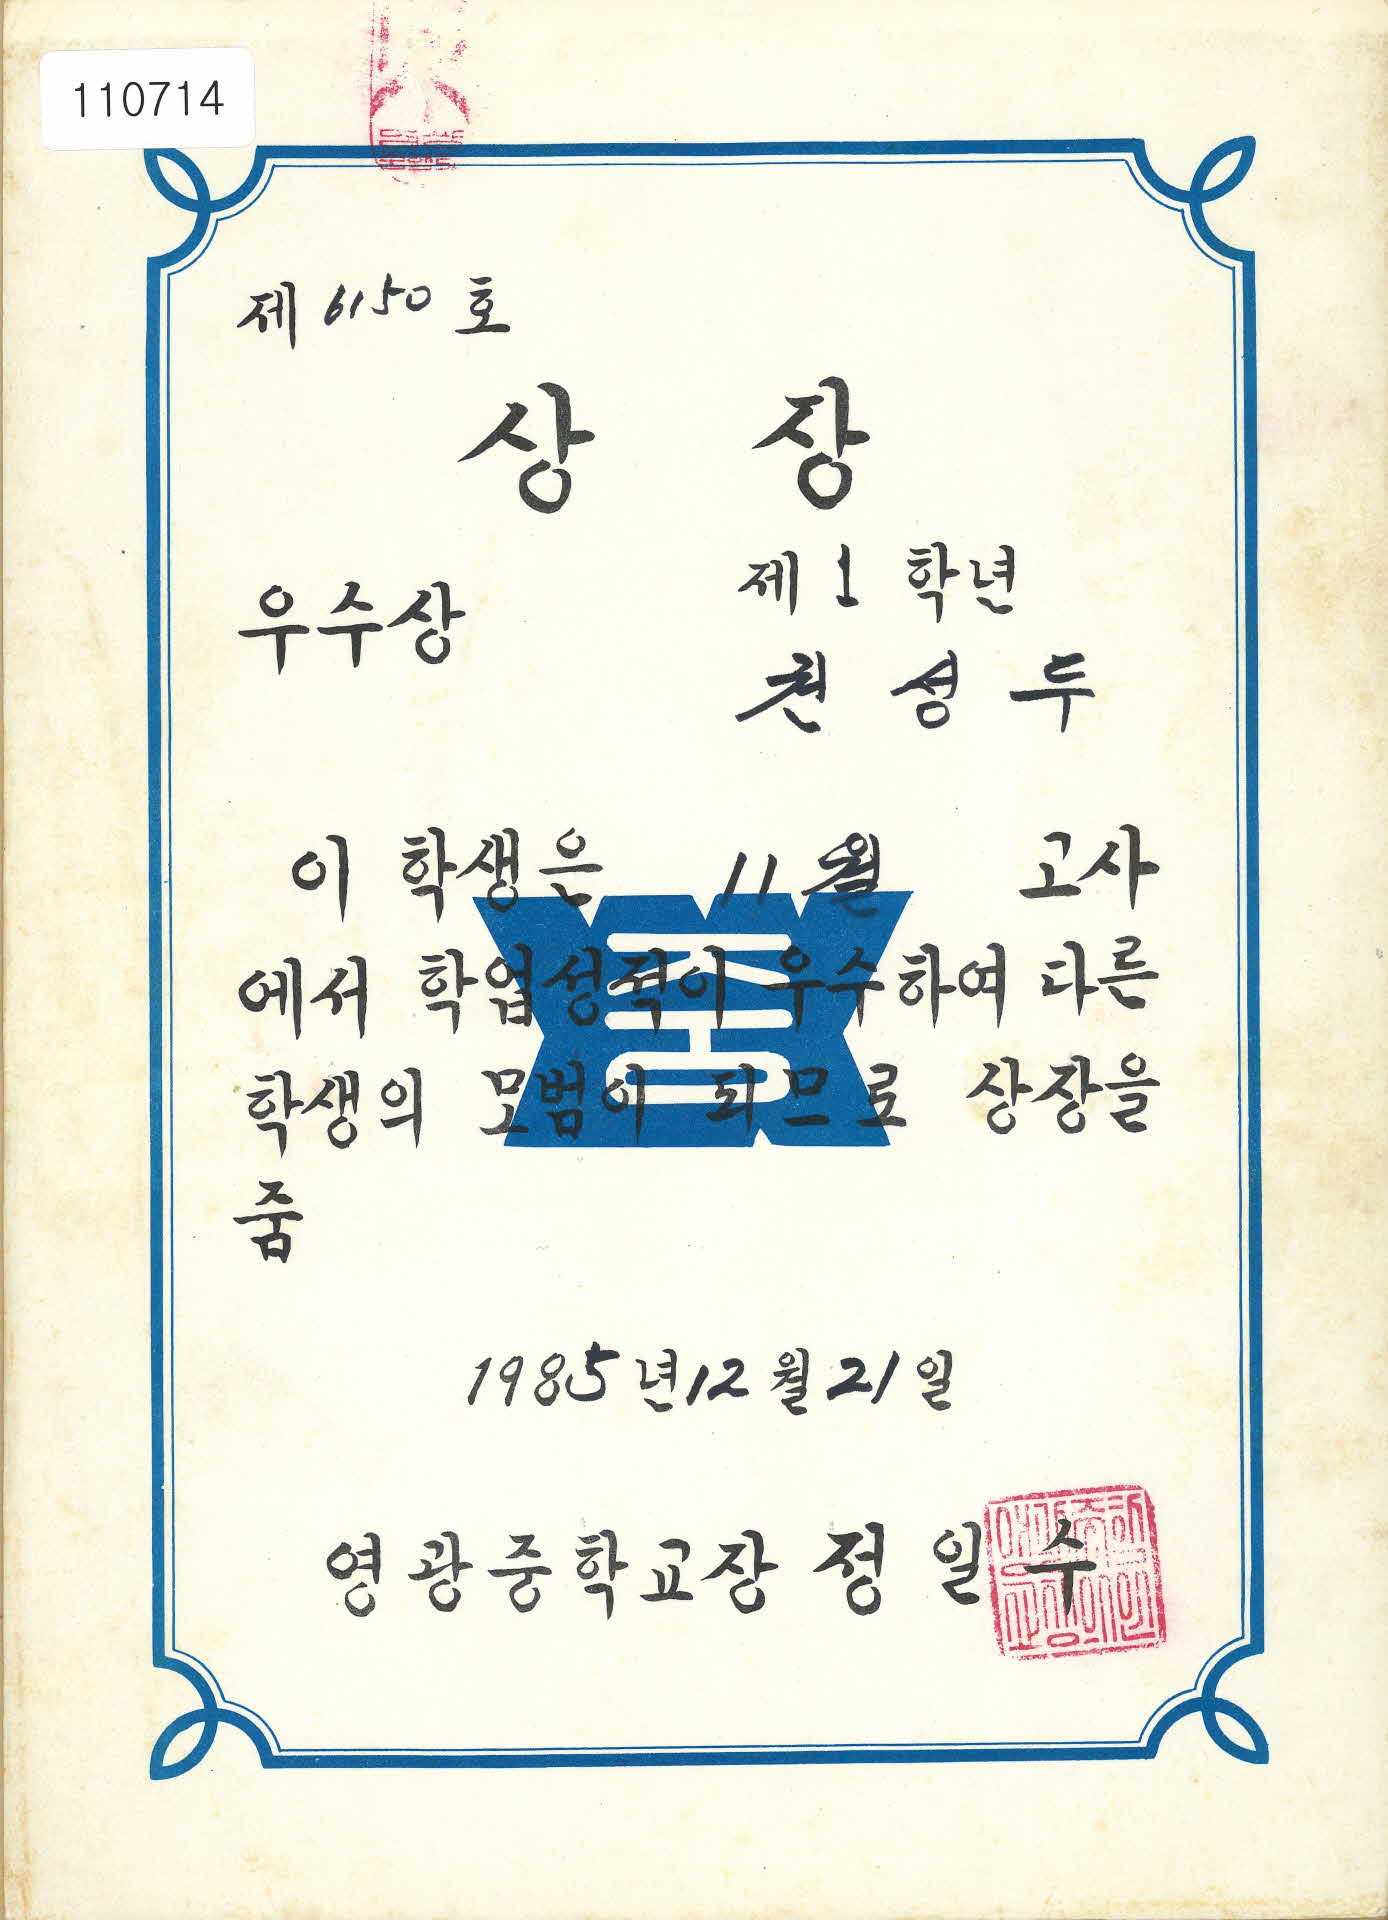 110714
제 6150 호
상 장
우수상
제 1 학년
권 성 두
이 학생은 11월 고사
에서 학업성적이 우수하여 다른
학생의 모범이 되므로 상장을
줌
1985년 12월 21일
영광중학교장 정 일 수